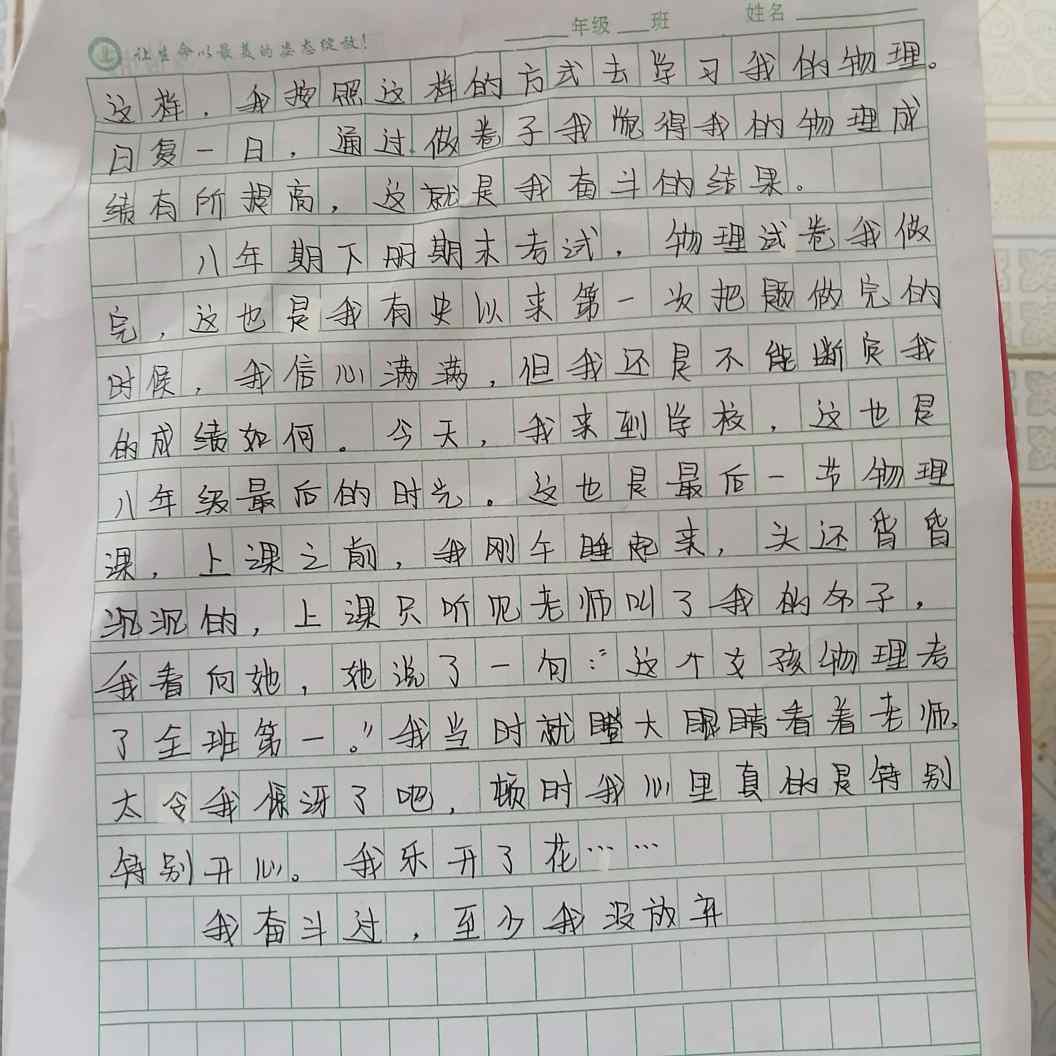 让生命以最美的姿态绽放！
年级 班 姓名
这样，我按照这样的方式去学习我的物理。
日复一日，通过做卷子我觉得我的物理成
绩有所提高，这就是我奋斗的结果。
八年期下册期末考试，物理试卷我做
完，这也是我有史以来第一次把题做完的
时候，我信心满满，但我还是不能断定我
的成绩如何。今天，我来到学校，这也是
八年级最后的时光。这也是最后一节物理
课，上课之前，我刚午睡起来，头还昏昏
沉沉的，上课只听见老师叫了我的名子，
我看向她，她说了一句：“这个女孩物理考
了全班第一。”我当时就瞪大眼睛看着老师，
太令我惊讶了吧，顿时我心里真的是特别
特别开心。我乐开了花……
我奋斗过，至少我没放弃